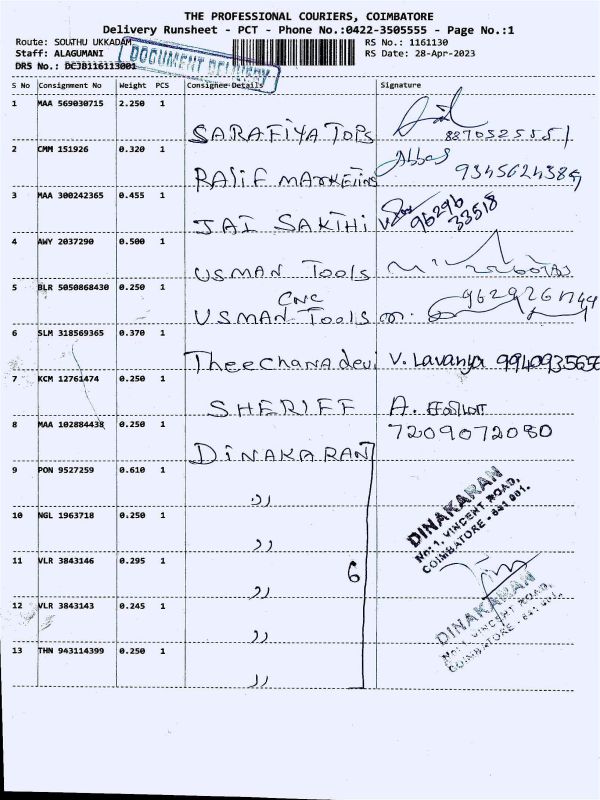 THE PROFESSIONAL COURIERS, COIMBATORE
Delivery Runsheet - PCT - Phone No.:0422-3505555 - Page No.:1
Route: SOUTHU UKKADAM RS No.: 1161130
Staff: ALAGUMANI RS Date: 28-Apr-2023
DOCUMENT DELIVERY
DRS No.: DCJB116113001
S No Consignment No Weight PCS Consignee Details Signature
1 MAA 569030715 2.250 1
SARAFIYA TOPS 8870525551
2 CMM 151926 0.320 1 Abbas
RASIF MARKETING 9345624389
3 MAA 300242365 0.455 1
JAI SAKTHI 96296 33518
4 AWY 2037290 0.500 1
USMAN Tools
5 BLR 5050868430 0.250 1
CNC
USMAN Tools
6 SLM 318569365 0.370 1
Theechanadevi V. Lavanya 9940935656
7 KCM 12761474 0.250 1
SHERIFF A.
8 MAA 102884438 0.250 1 7209072080
DINAKARAN
9 PON 9527259 0.610 1
,,
DINAKARAN
No: 1, VINCENT ROAD,
COIMBATORE - 641 001.
10 NGL 1963718 0.250 1
,,
11 VLR 3843146 0.295 1
6
,,
12 VLR 3843143 0.245 1
,,
DINAKARAN
No: 1, VINCENT ROAD,
COIMBATORE - 641 001.
13 THN 943114399 0.250 1
,,